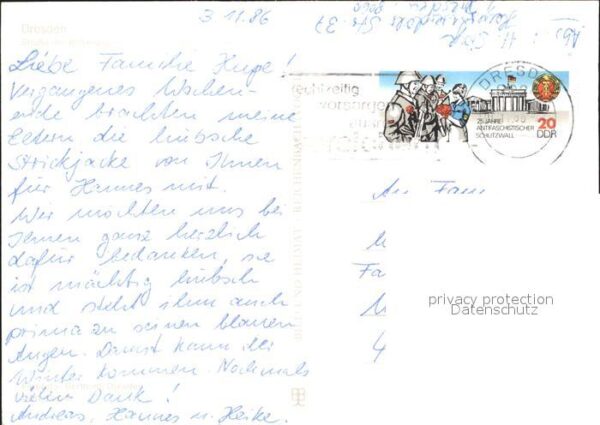 3.11.86
Dresden
Liebe Familie Hupe!
Vergangenes Wochen-
ende brachten meine
Eltern die hübsche
Strickjacke von Ihnen
für Hannes mit.
Wir möchten uns bei
Ihnen ganz herzlich
dafür bedanken, sie
ist mächtig hübsch
und sieht ihm auch
prima zu seinen blauen
Augen. Damit kann der
Winter kommen. Nochmals
vielen Dank!
Andreas, Hannes u. Heike.
Abs.
rechtzeitig
vorsorgen
DRESDEN
25 JAHRE
ANTIFASCHISTISCHER
SCHUTZWALL
20
DDR
BILD UND HEIMAT REICHENBACH
An Fam
Fa
4
privacy protection
Datenschutz